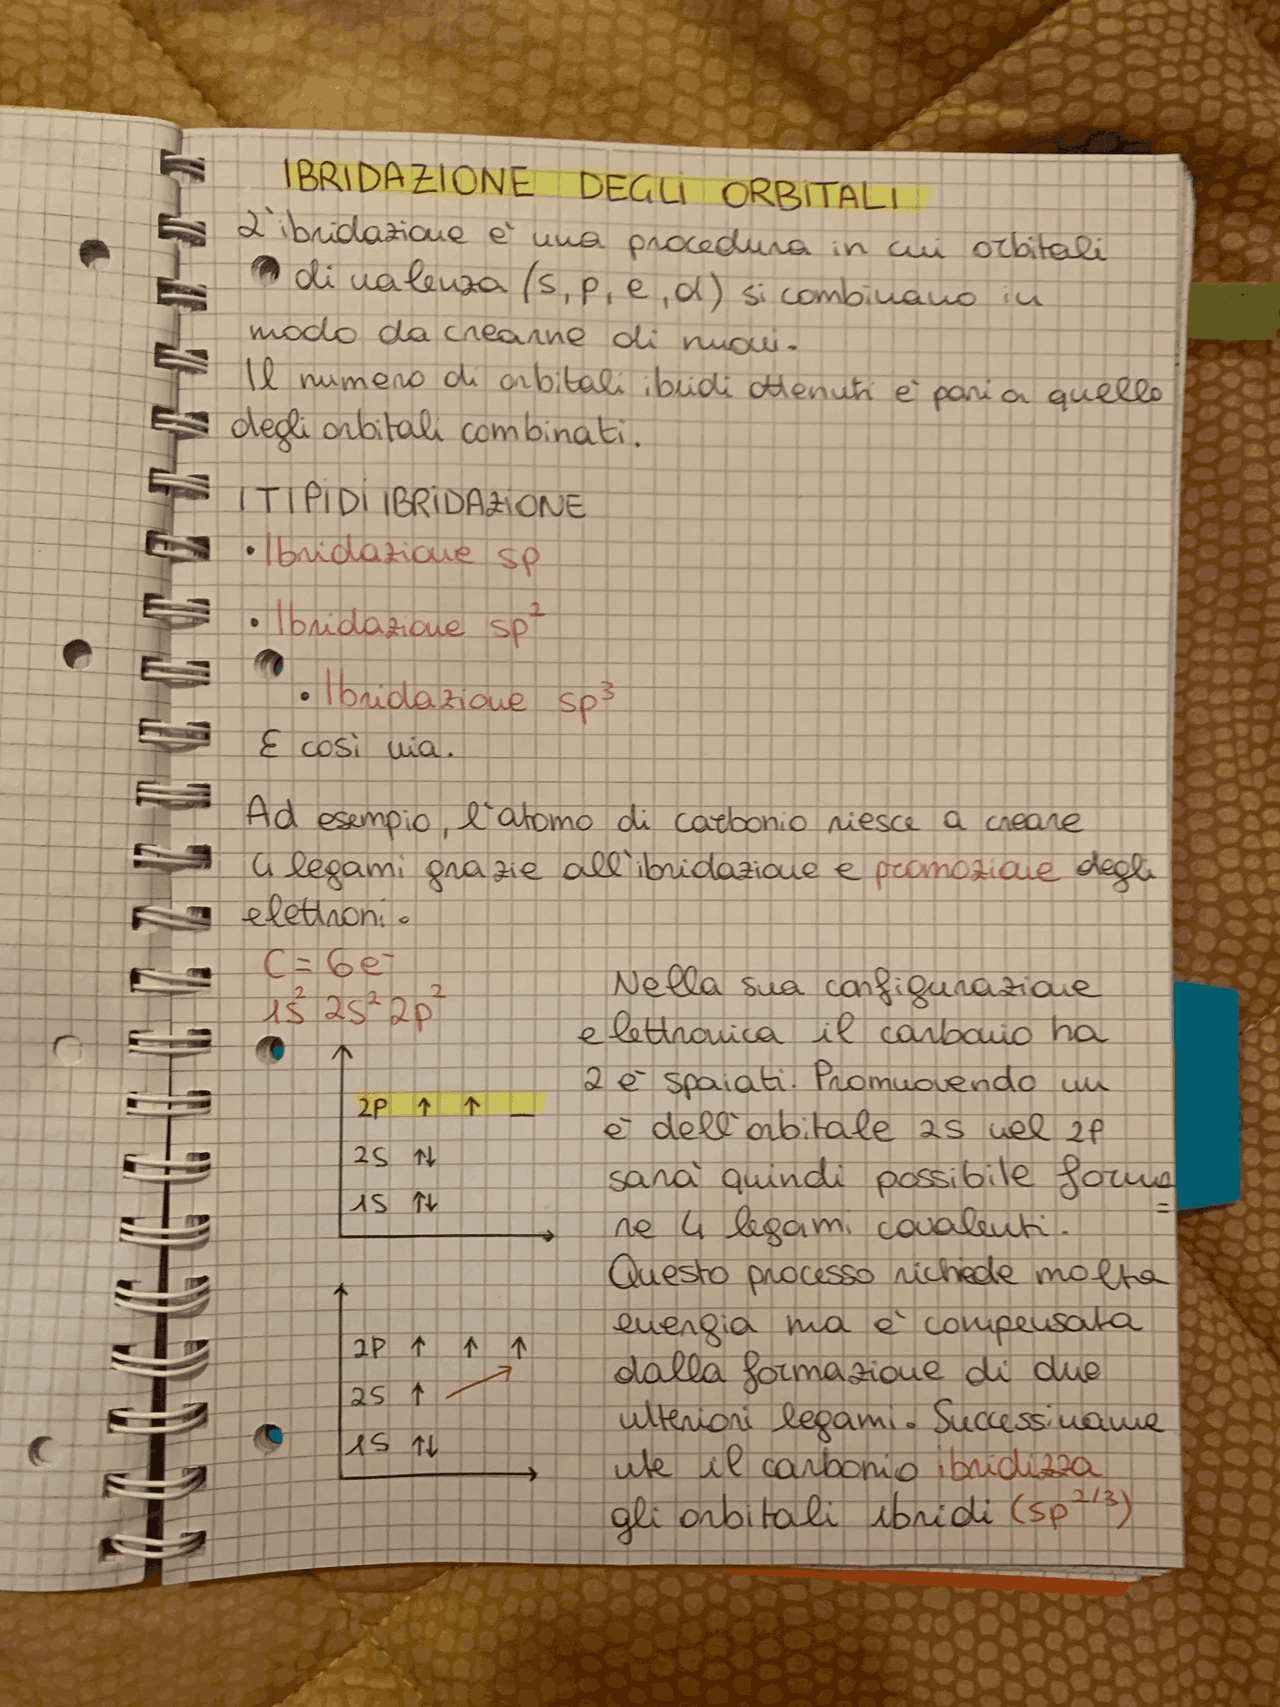 IBRIDAZIONE DEGLI ORBITALI
L'ibridazione è una procedura in cui orbitali
di valenza (s, p, e, d) si combinano in
modo da crearne di nuovi.
Il numero di orbitali ibridi ottenuti è pari a quello
degli orbitali combinati.
I TIPI DI IBRIDAZIONE
• Ibridazione sp
• Ibridazione sp²
• Ibridazione sp³
E così via.
Ad esempio, l'atomo di carbonio riesce a creare
4 legami grazie all'ibridazione e promozione degli
elettroni.
C = 6e⁻
1s² 2s² 2p²
2P ↑ ↑ _
2S ↑↓
1S ↑↓
2P ↑ ↑ ↑
2S ↑
1S ↑↓
Nella sua configurazione
elettronica il carbonio ha
2 e⁻ spaiati. Promuovendo un
e⁻ dell'orbitale 2s nel 2P
sarà quindi possibile forma=
re 4 legami covalenti.
Questo processo richiede molta
energia ma è compensata
dalla formazione di due
ulteriori legami. Successivame
nte il carbonio ibridizza
gli orbitali ibridi (sp²/³)